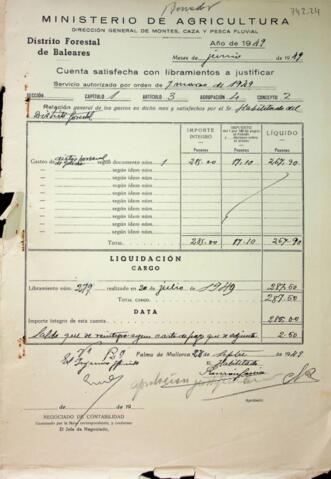 Borrador
74224
MINISTERIO DE AGRICULTURA
DIRECCIÓN GENERAL DE MONTES, CAZA Y PESCA FLUVIAL
Distrito Forestal
de Baleares
Año de 1949
Mes de junio de 1949
Cuenta satisfecha con libramientos a justificar
Servicio autorizado por orden de 7 marzo de 1949
SECCIÓN CAPÍTULO 1 ARTÍCULO 3 AGRUPACIÓN 4 CONCEPTO 2
Relación general de los gastos en dicho mes y satisfechos por el Sr. Habilitado del
Distrito forestal
IMPORTE
INTEGRO
IMPUESTO
LÍQUIDO
Pesetas Pesetas Pesetas
Gastos de según documento núm. 1 285.00 17.10 267.90
según ídem núm.
según ídem núm.
según ídem núm.
según ídem núm.
según ídem núm.
según ídem núm.
TOTAL 285.00 17.10 267.90
LIQUIDACIÓN
CARGO
Libramiento núm. 279 realizado en 20 de julio de 1949 287.50
TOTAL CARGO. 287.50
DATA
Importe íntegro de esta cuenta 285.00
Saldo que se reintegra según carta de pago que se adjunta 2.50
Vº Bº
El Ingeniero
Palma de Mallorca 28 de sepbre de 1949
El Habilitado
de de 19
Aprobado:
NEGOCIADO DE CONTABILIDAD
Examinada por la Mesa correspondiente, y conforme
El Jefe de Negociado,